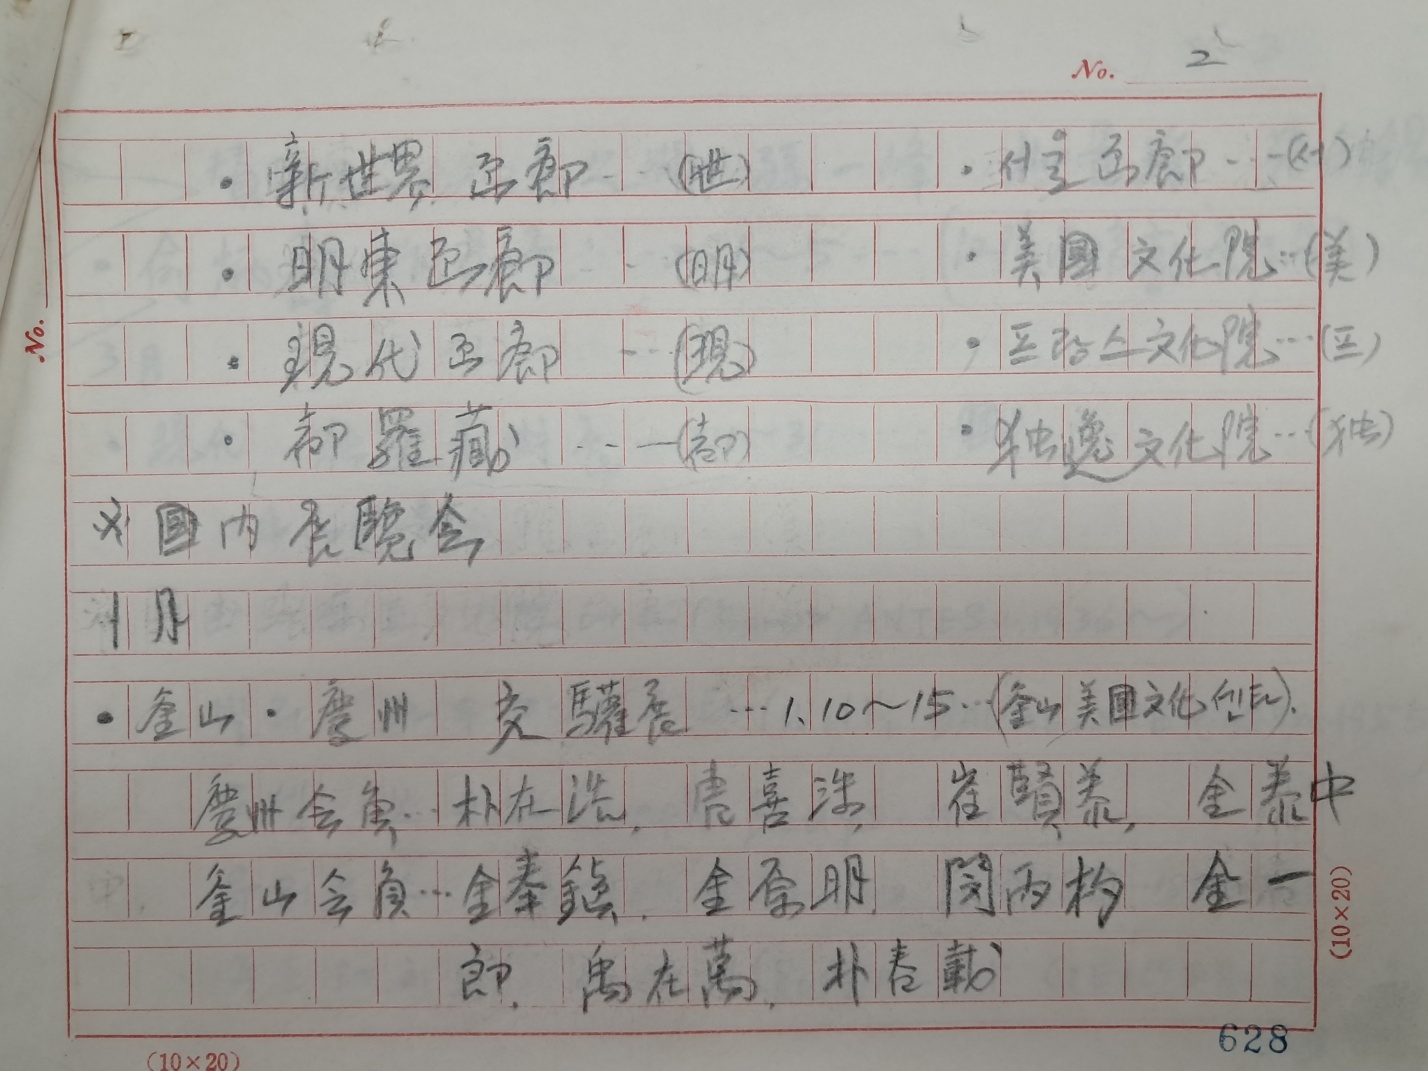 No. 2
· 新世界 画廊 … (世) · 서울画廊 … (서)
· 明東画廊 … (明) · 美國 文化院 … (美)
· 現代画廊 … (現) · 프랑스文化院 … (프)
· 都羅藏 … (都) · 独逸文化院 … (独)
※ 國内 展覽会
1月
· 釜山 · 慶州 交驩展 … 1.10～15 … (釜山美國文化센터).
慶州会員 … 朴在浩, 喜 崔賢泰, 金泰中
釜山会員 … 金奉鎭, 金原明, 閔丙 金一
郎, 禹在萬, 朴春載
No.
(10×20)
(10×20)
628